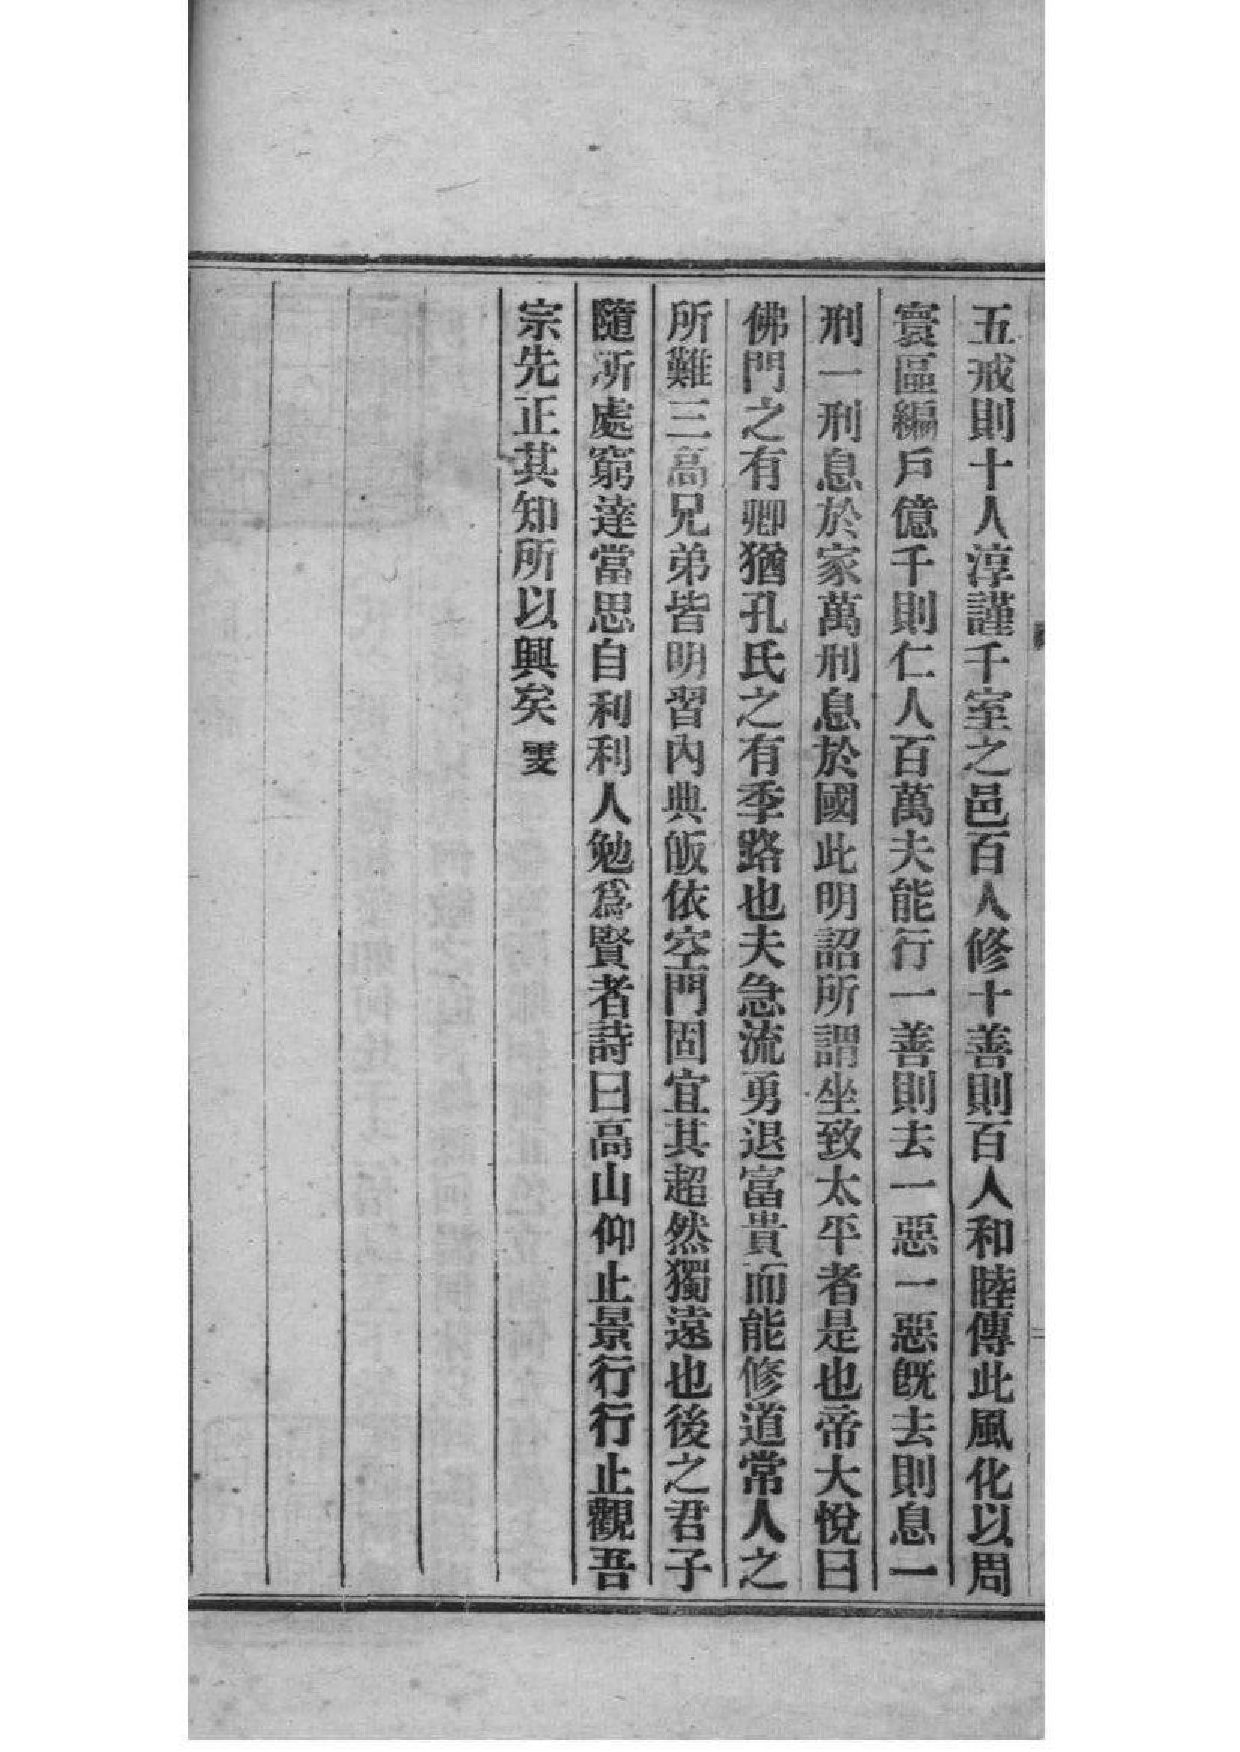 五戒則十人淳謹千室之邑百人修十善則百人和睦傳此風化以周
寰區編戶億千則仁人百萬夫能行一善則去一惡一惡旣去則息一
刑一刑息於家萬刑息於國此明詔所謂坐致太平者是也帝大悅曰
佛門之有卿猶孔氏之有季路也夫急流勇退富貴而能修道常人之
所難三高兄弟皆明習內典皈依空門固宜其超然獨遠也後之君子
隨所處窮達當思自利利人勉爲賢者詩曰高山仰止景行行止觀吾
宗先正其知所以興矣 雯